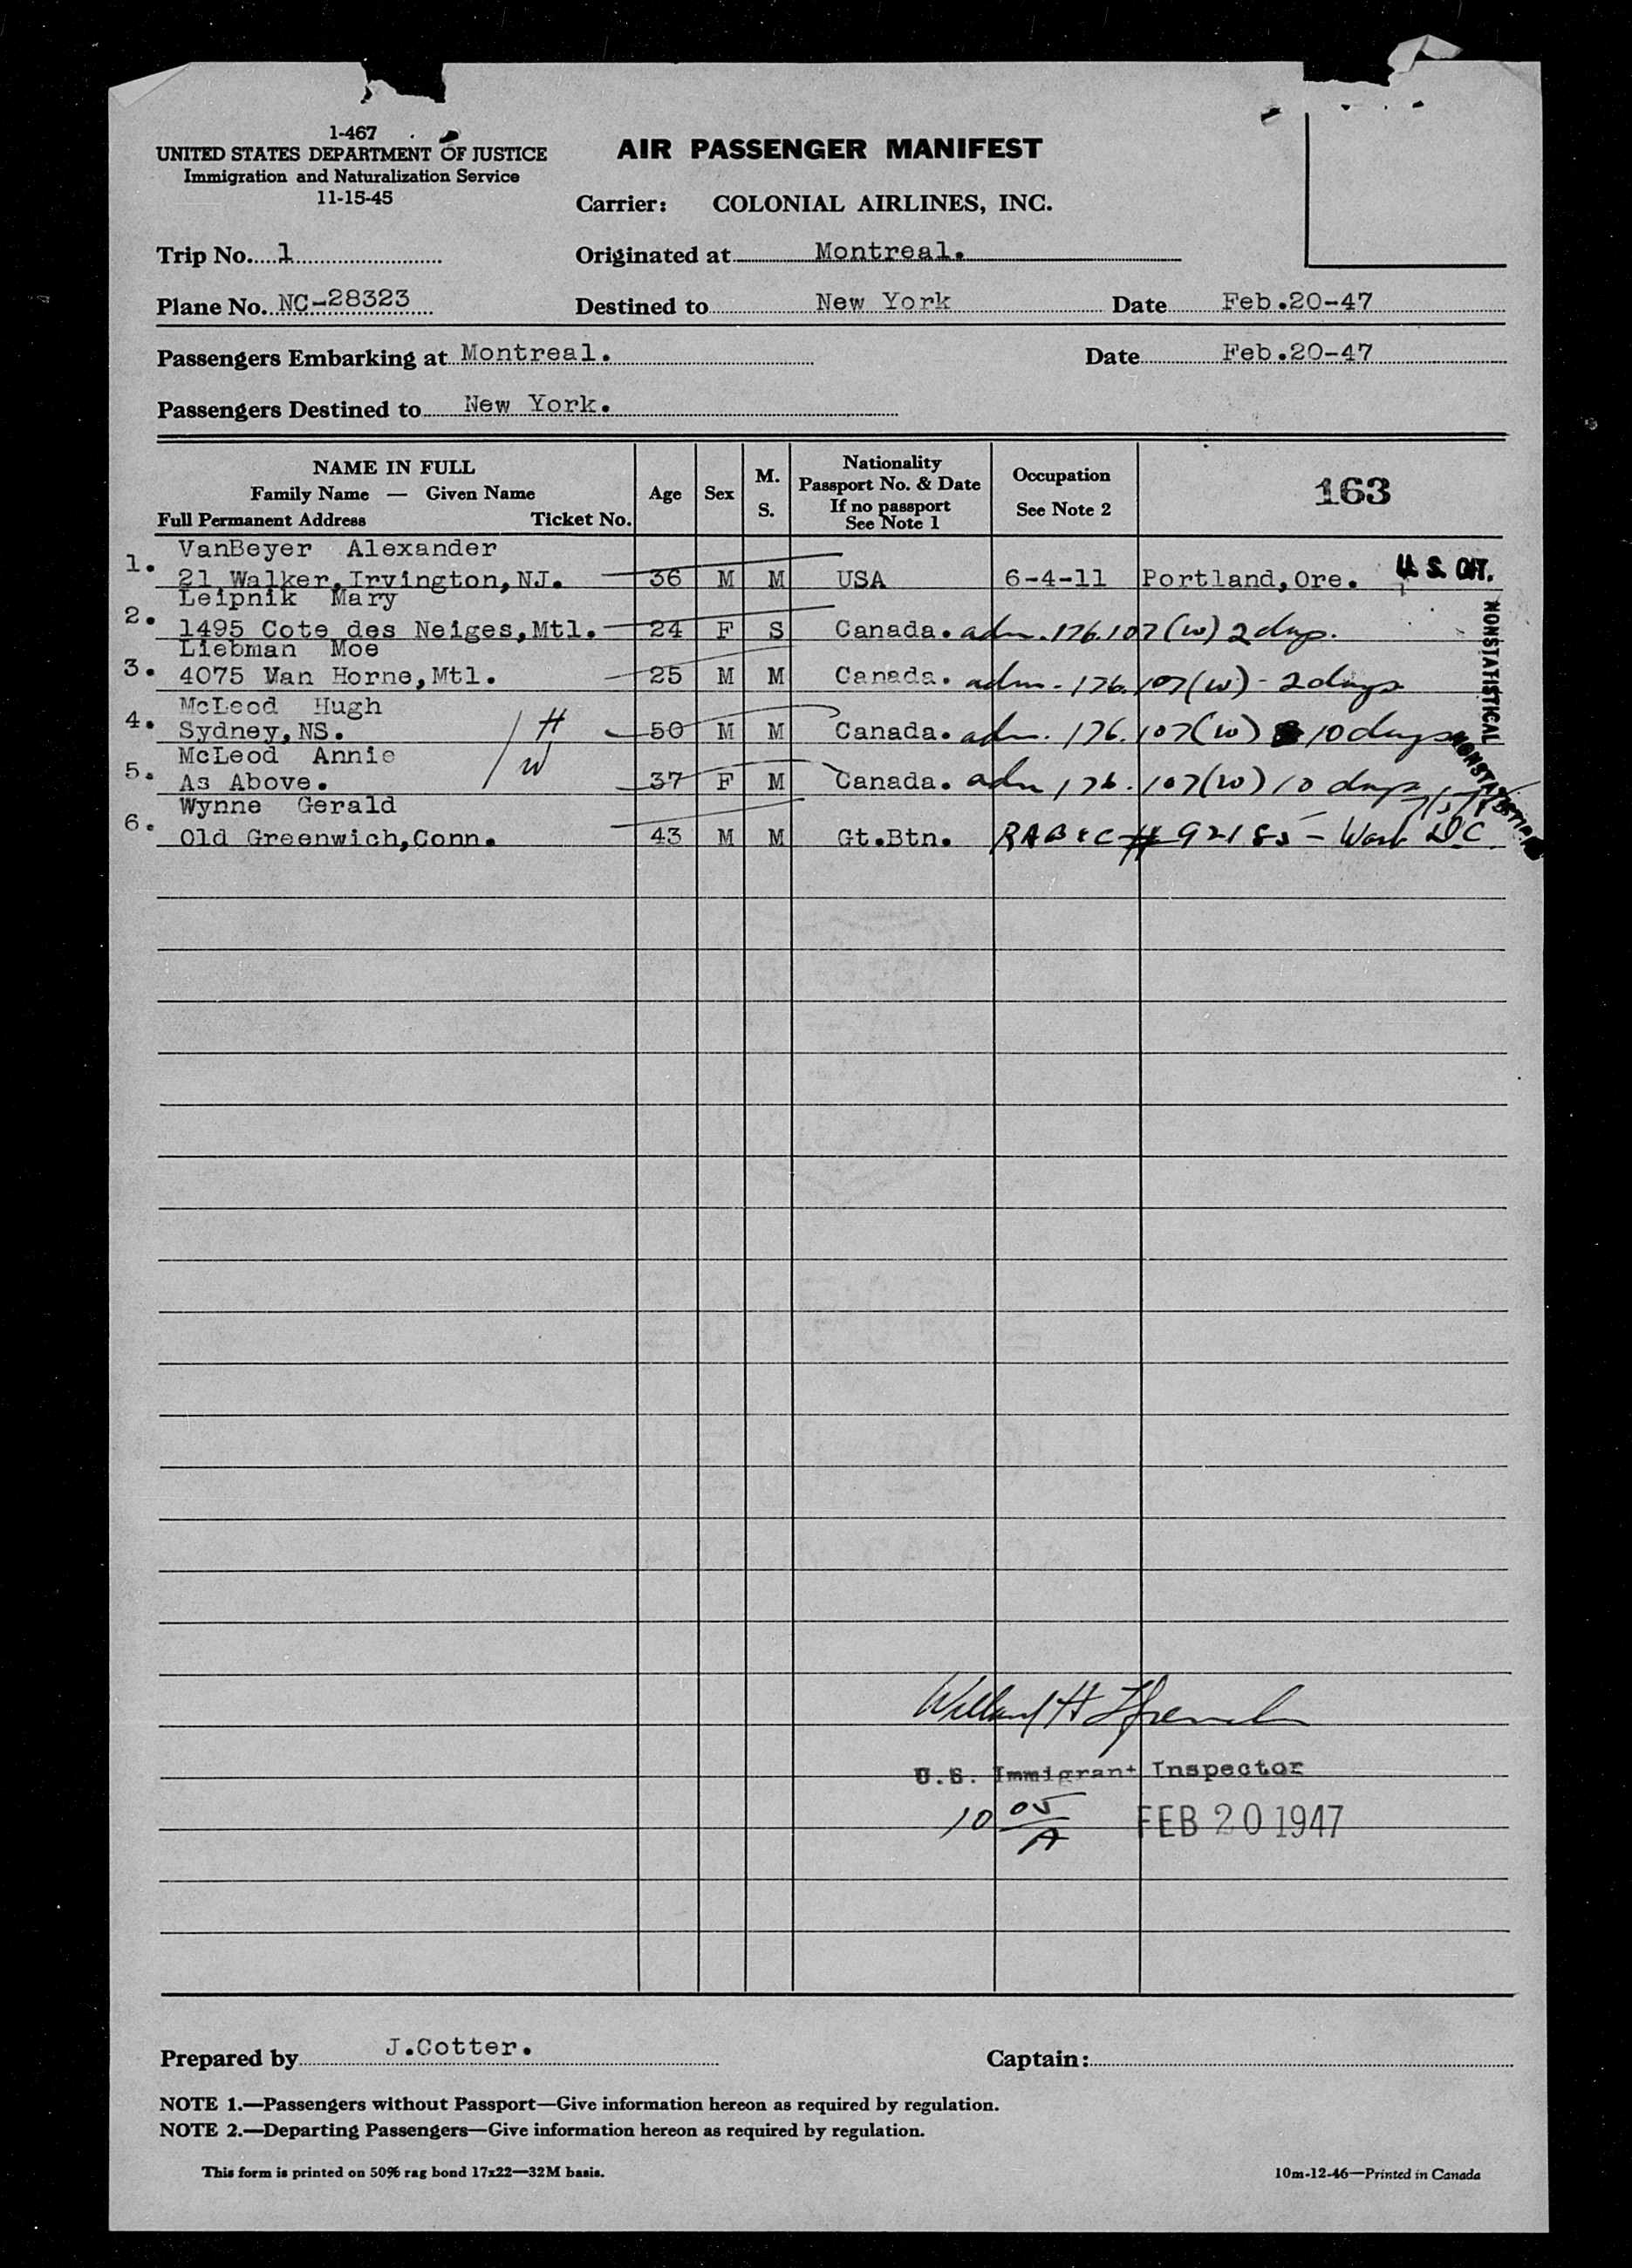 1-467
UNITED STATES DEPARTMENT OF JUSTICE
Immigration and Naturalization Service
11-15-45
AIR PASSENGER MANIFEST
Carrier: COLONIAL AIRLINES, INC.
Trip No. 1 Originated at Montreal.
Plane No. NC-28323 Destined to New York Date Feb.20-47
Passengers Embarking at Montreal. Date Feb.20-47
Passengers Destined to New York.
NAME IN FULL
Family Name — Given Name
Full Permanent Address Ticket No.
Age
Sex
M.
S.
Nationality
Passport No. & Date
If no passport
See Note 1
Occupation
See Note 2
163
VanBeyer Alexander
1. 21 Walker,Irvington,NJ. 36 M M USA 6-4-11 Portland,Ore. U. S. CIT.
Leipnik Mary
2. 1495 Cote des Neiges,Mtl. 24 F S Canada. adm. 176.107(w) 2 days.
Liebman Moe
3. 4075 Van Horne,Mtl. 25 M M Canada. adm. 176.107(w) - 2 days
McLeod Hugh
4. Sydney,NS. H 50 M M Canada. adm. 176.107(w) 10 days
McLeod Annie
5. As Above. W 37 F M Canada. adm 176.107(w) 10 days
Wynne Gerald
6. Old Greenwich,Conn. 43 M M Gt.Btn. # 92185 - Wash D.C.
NONSTATISTICAL
NONSTATISTICAL
U.S. Immigrant Inspector
10 05/A FEB 20 1947
Prepared by J.Cotter. Captain:
NOTE 1.—Passengers without Passport—Give information hereon as required by regulation.
NOTE 2.—Departing Passengers—Give information hereon as required by regulation.
This form is printed on 50% rag bond 17x22—32M basis. 10m-12-46—Printed in Canada